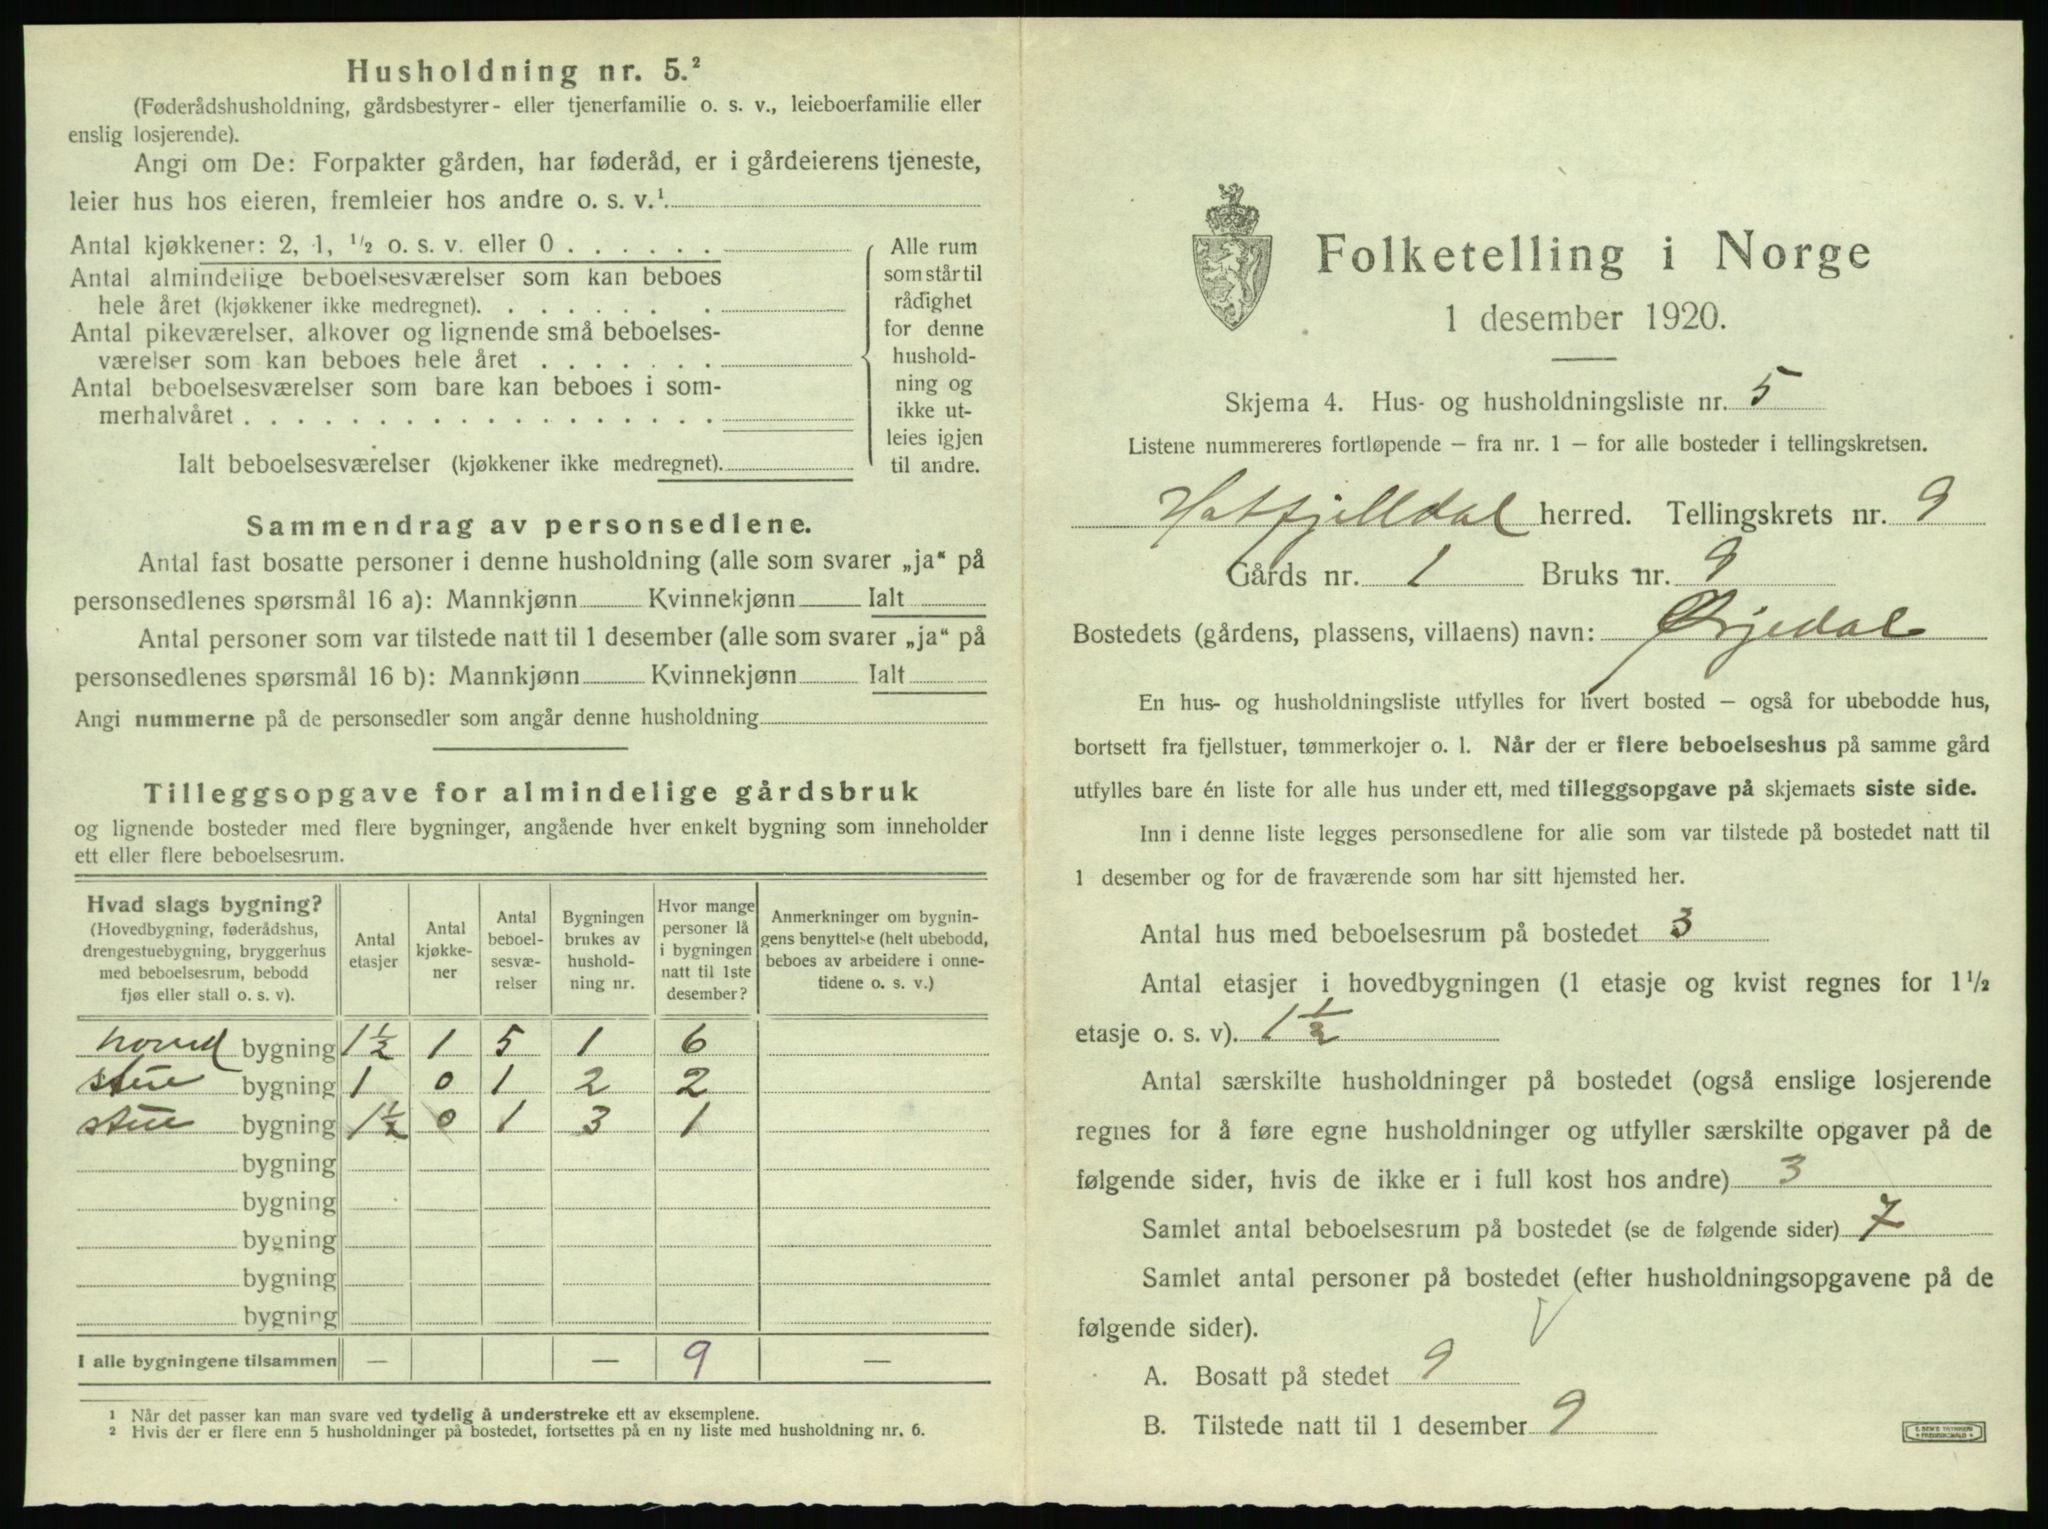 Husholdning nr. 5.²
(Føderådshusholdning, gårdsbestyrer- eller tjenerfamilie o. s. v., leieboerfamilie eller
enslig losjerende).
Angi om De: Forpakter gården, har føderåd, er i gårdeierens tjeneste,
leier hus hos eieren, fremleier hos andre o. s. v.¹
Antal kjøkkener: 2, 1, ½ o. s. v. eller 0
Antal almindelige beboelsesværelser som kan beboes
hele året (kjøkkener ikke medregnet).
Antal pikeværelser, alkover og lignende små beboelses-
værelser som kan beboes hele året
Antal beboelsesværelser som bare kan beboes i som-
merhalvåret
Ialt beboelsesværelser (kjøkkener ikke medregnet).
Alle rum
som står til
rådighet
for denne
hushold-
ning og
ikke ut-
leies igjen
til andre.
Sammendrag av personsedlene.
Antal fast bosatte personer i denne husholdning (alle som svarer „ja“ på
personsedlenes spørsmål 16 a): Mannkjønn Kvinnekjønn Ialt
Antal personer som var tilstede natt til 1 desember (alle som svarer „ja“ på
personsedlenes spørsmål 16 b): Mannkjønn Kvinnekjønn Ialt
Angi nummerne på de personsedler som angår denne husholdning
Tilleggsopgave for almindelige gårdsbruk
og lignende bosteder med flere bygninger, angående hver enkelt bygning som inneholder
ett eller flere beboelsesrum.
Hvad slags bygning?
(Hovedbygning, føderådshus,
drengestuebygning, bryggerhus
med beboelsesrum, bebodd
fjøs eller stall o. s. v).
Antal
etasjer
Antal
kjøkke-
ner
Antal
beboel-
sesvæ-
relser
Bygningen
brukes av
hushold-
ning nr.
Hvor mange
personer lå
i bygningen
natt til 1ste
desember?
Anmerkninger om bygnin-
gens benyttelse (helt ubebodd,
beboes av arbeidere i onne-
tidene o. s. v.)
hoved bygning 1½ 1 5 1 6
stue bygning 1 0 1 2 2
stue bygning 1½ 0 1 3 1
bygning
bygning
bygning
bygning
bygning
I alle bygningene tilsammen — — 9 —
¹ Når det passer kan man svare ved tydelig å understreke ett av eksemplene.
² Hvis der er flere enn 5 husholdninger på bostedet, fortsettes på en ny liste med husholdning nr. 6.
Folketelling i Norge
1 desember 1920.
Skjema 4. Hus- og husholdningsliste nr. 5
Listene nummereres fortløpende — fra nr. 1 — for alle bosteder i tellingskretsen.
Hatfjelldal herred. Tellingskrets nr. 9
Gårds nr. 1 Bruks nr. 9
Bostedets (gårdens, plassens, villaens) navn: Ørjedal
En hus- og husholdningsliste utfylles for hvert bosted — også for ubebodde hus,
bortsett fra fjellstuer, tømmerkojer o. l. Når der er flere beboelseshus på samme gård
utfylles bare én liste for alle hus under ett, med tilleggsopgave på skjemaets siste side.
Inn i denne liste legges personsedlene for alle som var tilstede på bostedet natt til
1 desember og for de fraværende som har sitt hjemsted her.
Antal hus med beboelsesrum på bostedet 3
Antal etasjer i hovedbygningen (1 etasje og kvist regnes for 1½
etasje o. s. v). 1½
Antal særskilte husholdninger på bostedet (også enslige losjerende
regnes for å føre egne husholdninger og utfyller særskilte opgaver på de
følgende sider, hvis de ikke er i full kost hos andre) 3
Samlet antal beboelsesrum på bostedet (se de følgende sider) 7
Samlet antal personer på bostedet (efter husholdningsopgavene på de
følgende sider).
A. Bosatt på stedet 9
B. Tilstede natt til 1 desember 9